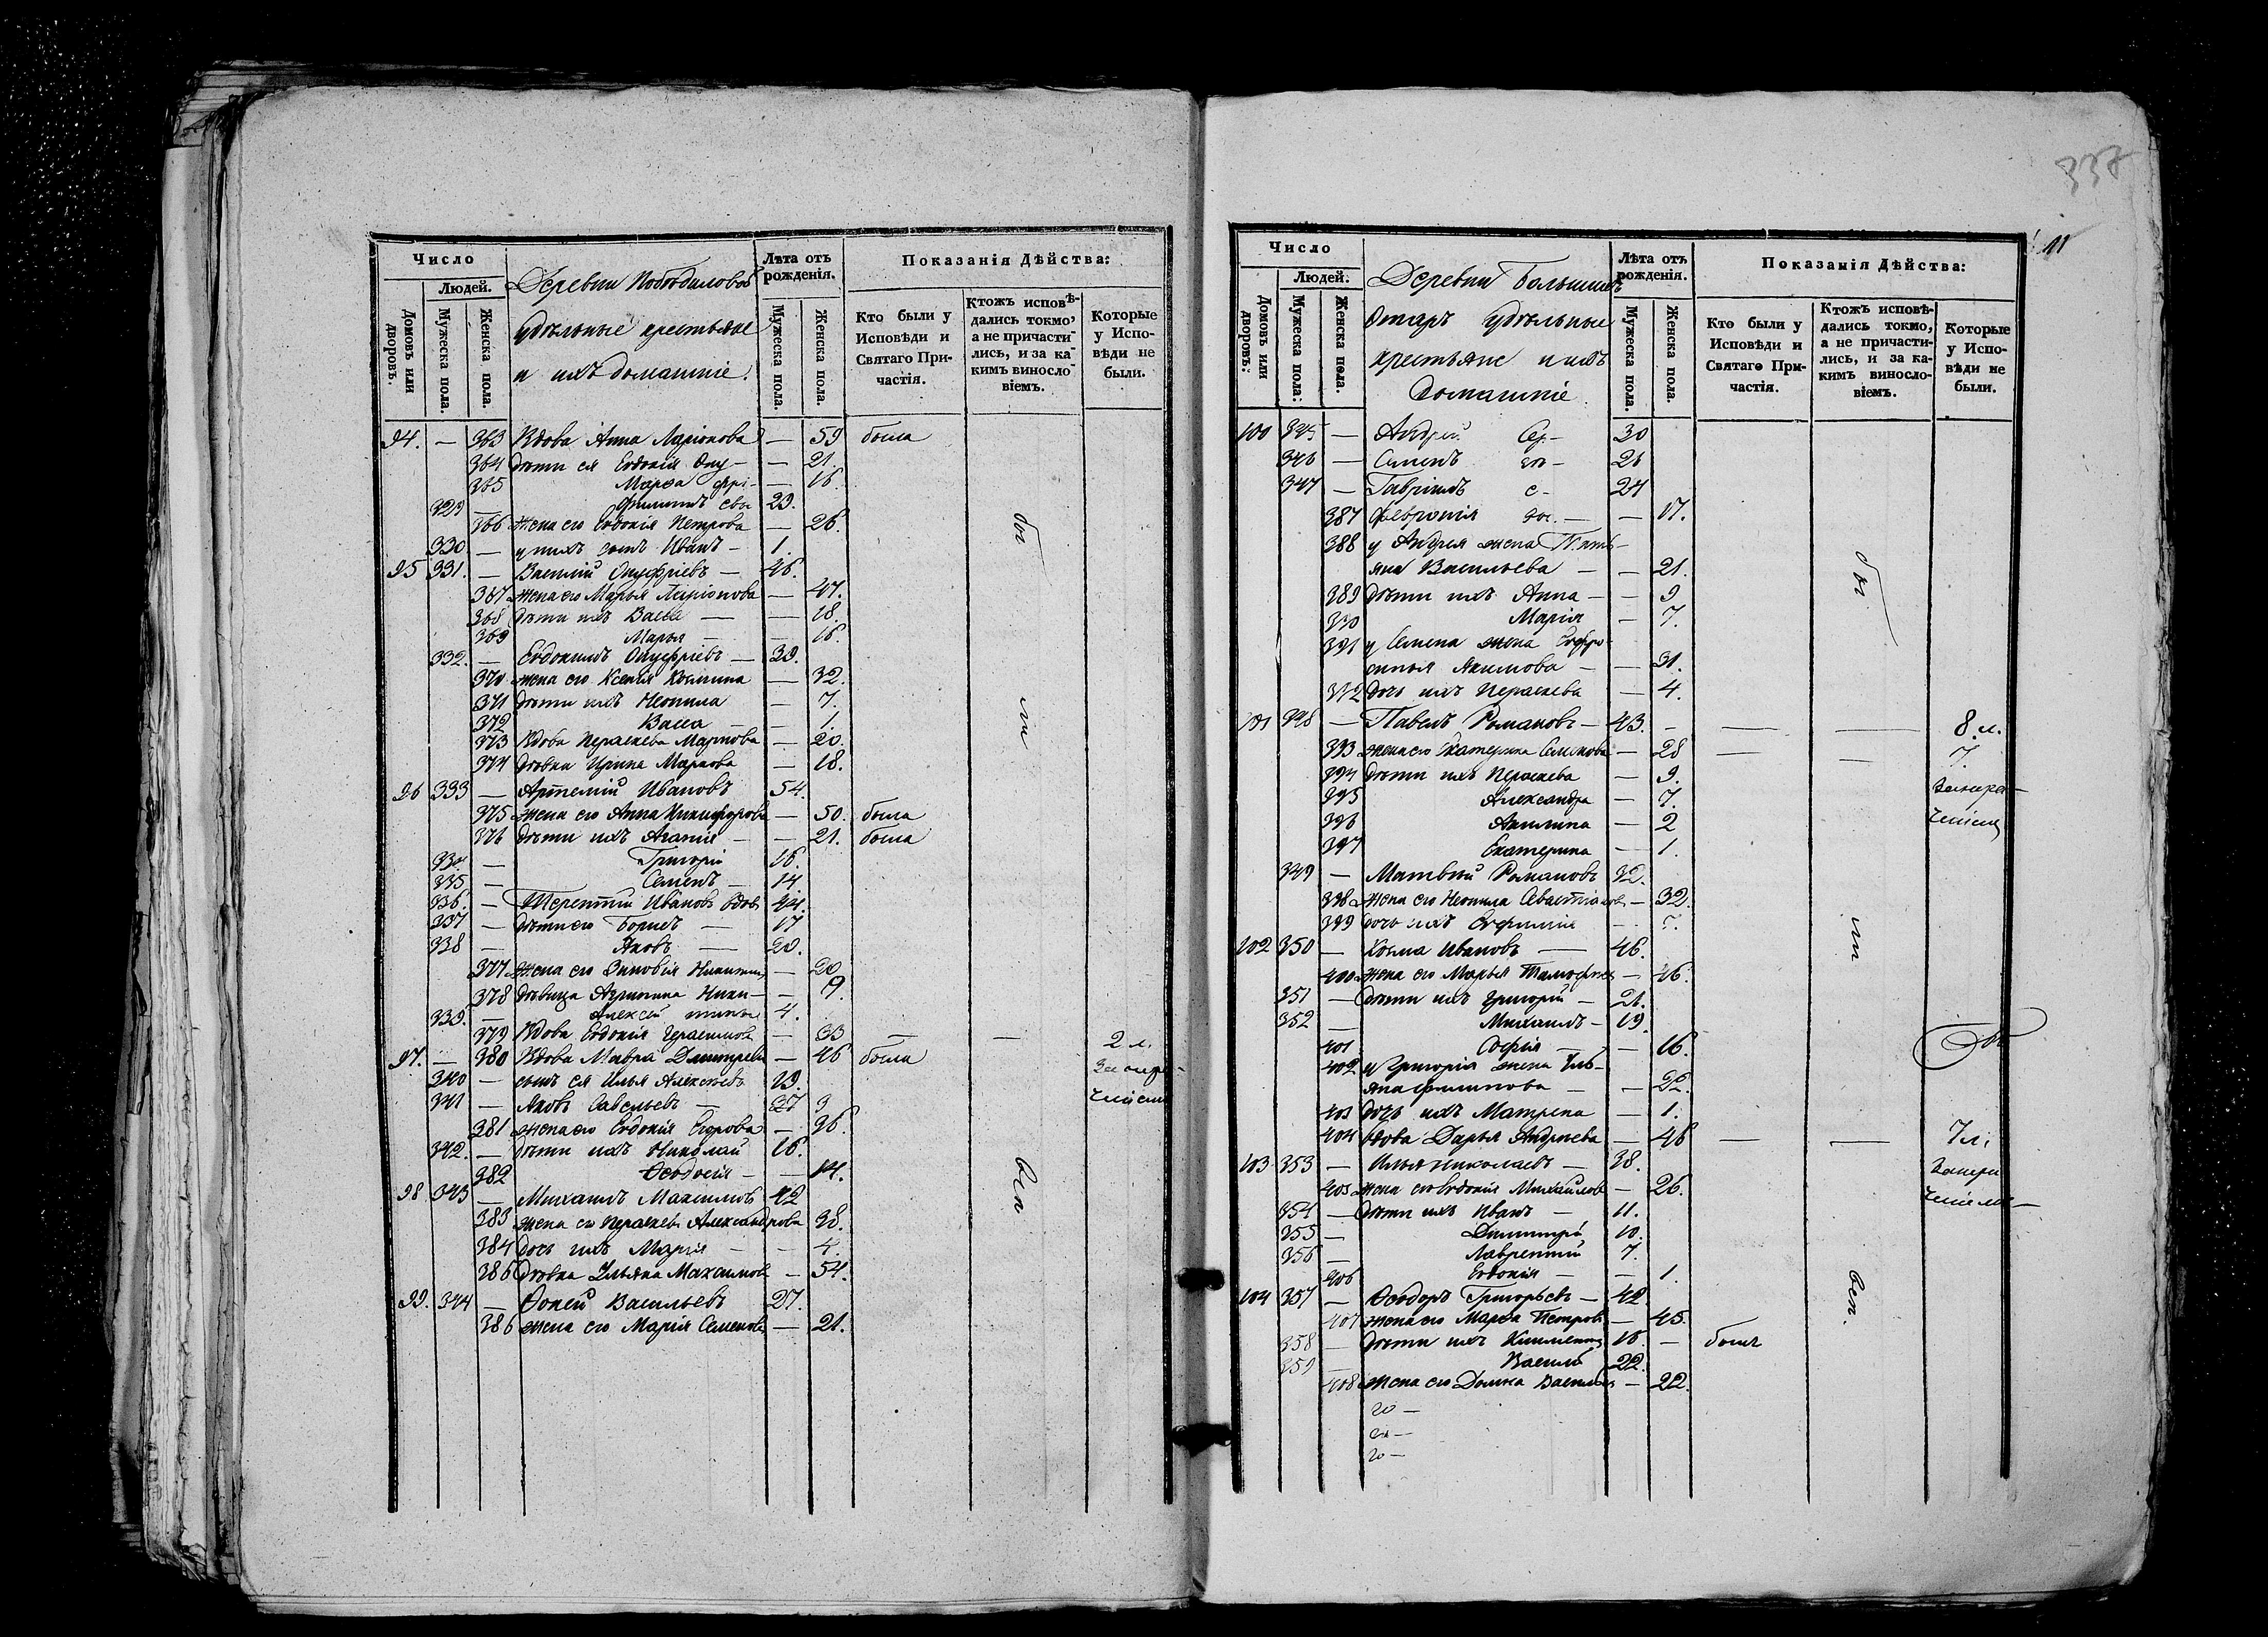 337
Число
Людей.
Домовъ или дворовъ.
Мужеска пола.
Женска пола.
Деревни Побѣдиловой
удѣльные крестьяне
и ихъ домашніе.
Лѣта отъ рожденія.
Мужеска пола.
Женска пола.
Показанія Дѣйства:
Кто были у Исповѣди и Святаго Причастія.
Ктожъ исповѣдались токмо, а не причастились, и за какимъ винословіемъ.
Которые у Исповѣди не были.
94. — 363 Вдова Анна Ларіонова — 59 была
364 дѣти ея Евдокія — 21.
365 Марѳа — 16.
329 — Филиппъ 23.
366 жена его Евдокія Петрова — 26.
330 — у нихъ сынъ Иванъ — 1.
95 331. — Василій Онуфріевъ — 46.
367 жена его Марья Ларіонова — 47.
368 дѣти ихъ Васса — — 18.
369 Марья — — 16.
332. — Евдокимъ Онуфріевъ — 39.
370 жена его Ксенія Козмина — 32.
371 дѣти ихъ Неонила — 7.
372 Васса — — 1.
373 Вдова Пераскева Маркова — 20.
374 дѣвка Ирина Маркова — 18.
96 333 — Артемій Ивановъ 54.
375 жена его Анна Никифорова — 50. была
376 дѣти ихъ Агапія — — 21. была
334 — Григорій 16.
335 — Семенъ — 14.
336. — Терентій Ивановъ вдов 44.
337 — дѣти его Борисъ — 17
338 — Яковъ — 20.
377 жена его Зиновія — 20
378 дѣвица Агрипина — 9.
339. — Алексѣй 4.
379 Вдова Евдокія Герасимова — 33 — — 2 л.
97. — 380 Вдова Мавра Дмитріева — 46 была
340 — сынъ ея Илья Алексѣевъ 19.
341 — Яковъ Савельевъ — 37
381 жена его Евдокія Егорова — 36.
342. — дѣти ихъ Николай 16.
382 Ѳеодосія — — 14.
98 343 — Михаилъ Максимовъ 42
383 жена его Пераскева Александрова 38.
384 дочь ихъ Марія — — 4.
385 дѣвка Ульяна Максимова — 54.
99. 344 — Ѳокей Васильевъ 27.
386 жена его Марія Семенова — 21.
11
Число
Людей.
Домовъ или дворовъ:
Мужеска пола:
Женска пола.
Деревни Большихъ
Отаръ Удѣльные
крестьяне и ихъ
домашніе.
Лѣта отъ рожденія.
Мужеска пола.
Женска пола.
Показанія Дѣйства:
Кто были у Исповѣди и Святаго Причастія.
Ктожъ исповѣдались токмо, а не причастились, и за какимъ винословіемъ.
Которые у Исповѣди не были.
100 345 — Андрей 30
346 — Семенъ 26
347 — Гавріилъ 24
387 Февронія — — 17.
388 у Андрея жена
Васильева — — 21.
389 дѣти ихъ Анна — — 9
390 Марія — 7.
391 у Семена жена Евфро-
синья Акимова — — 31.
392 дочь ихъ Пераскева — 4.
101 348 — Павелъ Романовъ — 43. — — — 8. л.
393 жена его Екатерина Семенова — 28 — — 7.
394 дѣти ихъ Пераскева — 9.
395 Александра — 7.
396 Акилина — 2
397 Екатерина — 1.
349 — Матвѣй Романовъ 32.
398 жена его Неонила Севастіанова — 32.
399 дочь ихъ Евфимія
102 350 — Козма Ивановъ — 46.
400 жена его Марья — 46.
351 — дѣти ихъ Григорій — 21.
352 — Михаилъ — 19.
401 Софія — — 16.
402 у Григорія жена Уль-
яна Филипова — — 22.
403 дочь ихъ Матрена — 1.
404 вдова Дарья Андреева — 46 — — 7 л.
103 353 — Илья Николаевъ — 38.
405 жена его Евдокія Михайлова — 26.
354 — дѣти ихъ Иванъ — 11.
355 — Димитрій 10.
356 — Лаврентій 7.
406 Евдокія — — 1.
104 357 — Ѳеодоръ Григорьевъ — 42
407 жена его Марѳа Петрова — 45.
358 — дѣти ихъ Климентъ 16. — былъ
359 — Василій 22.
408 жена его Домна Васильева — 22.